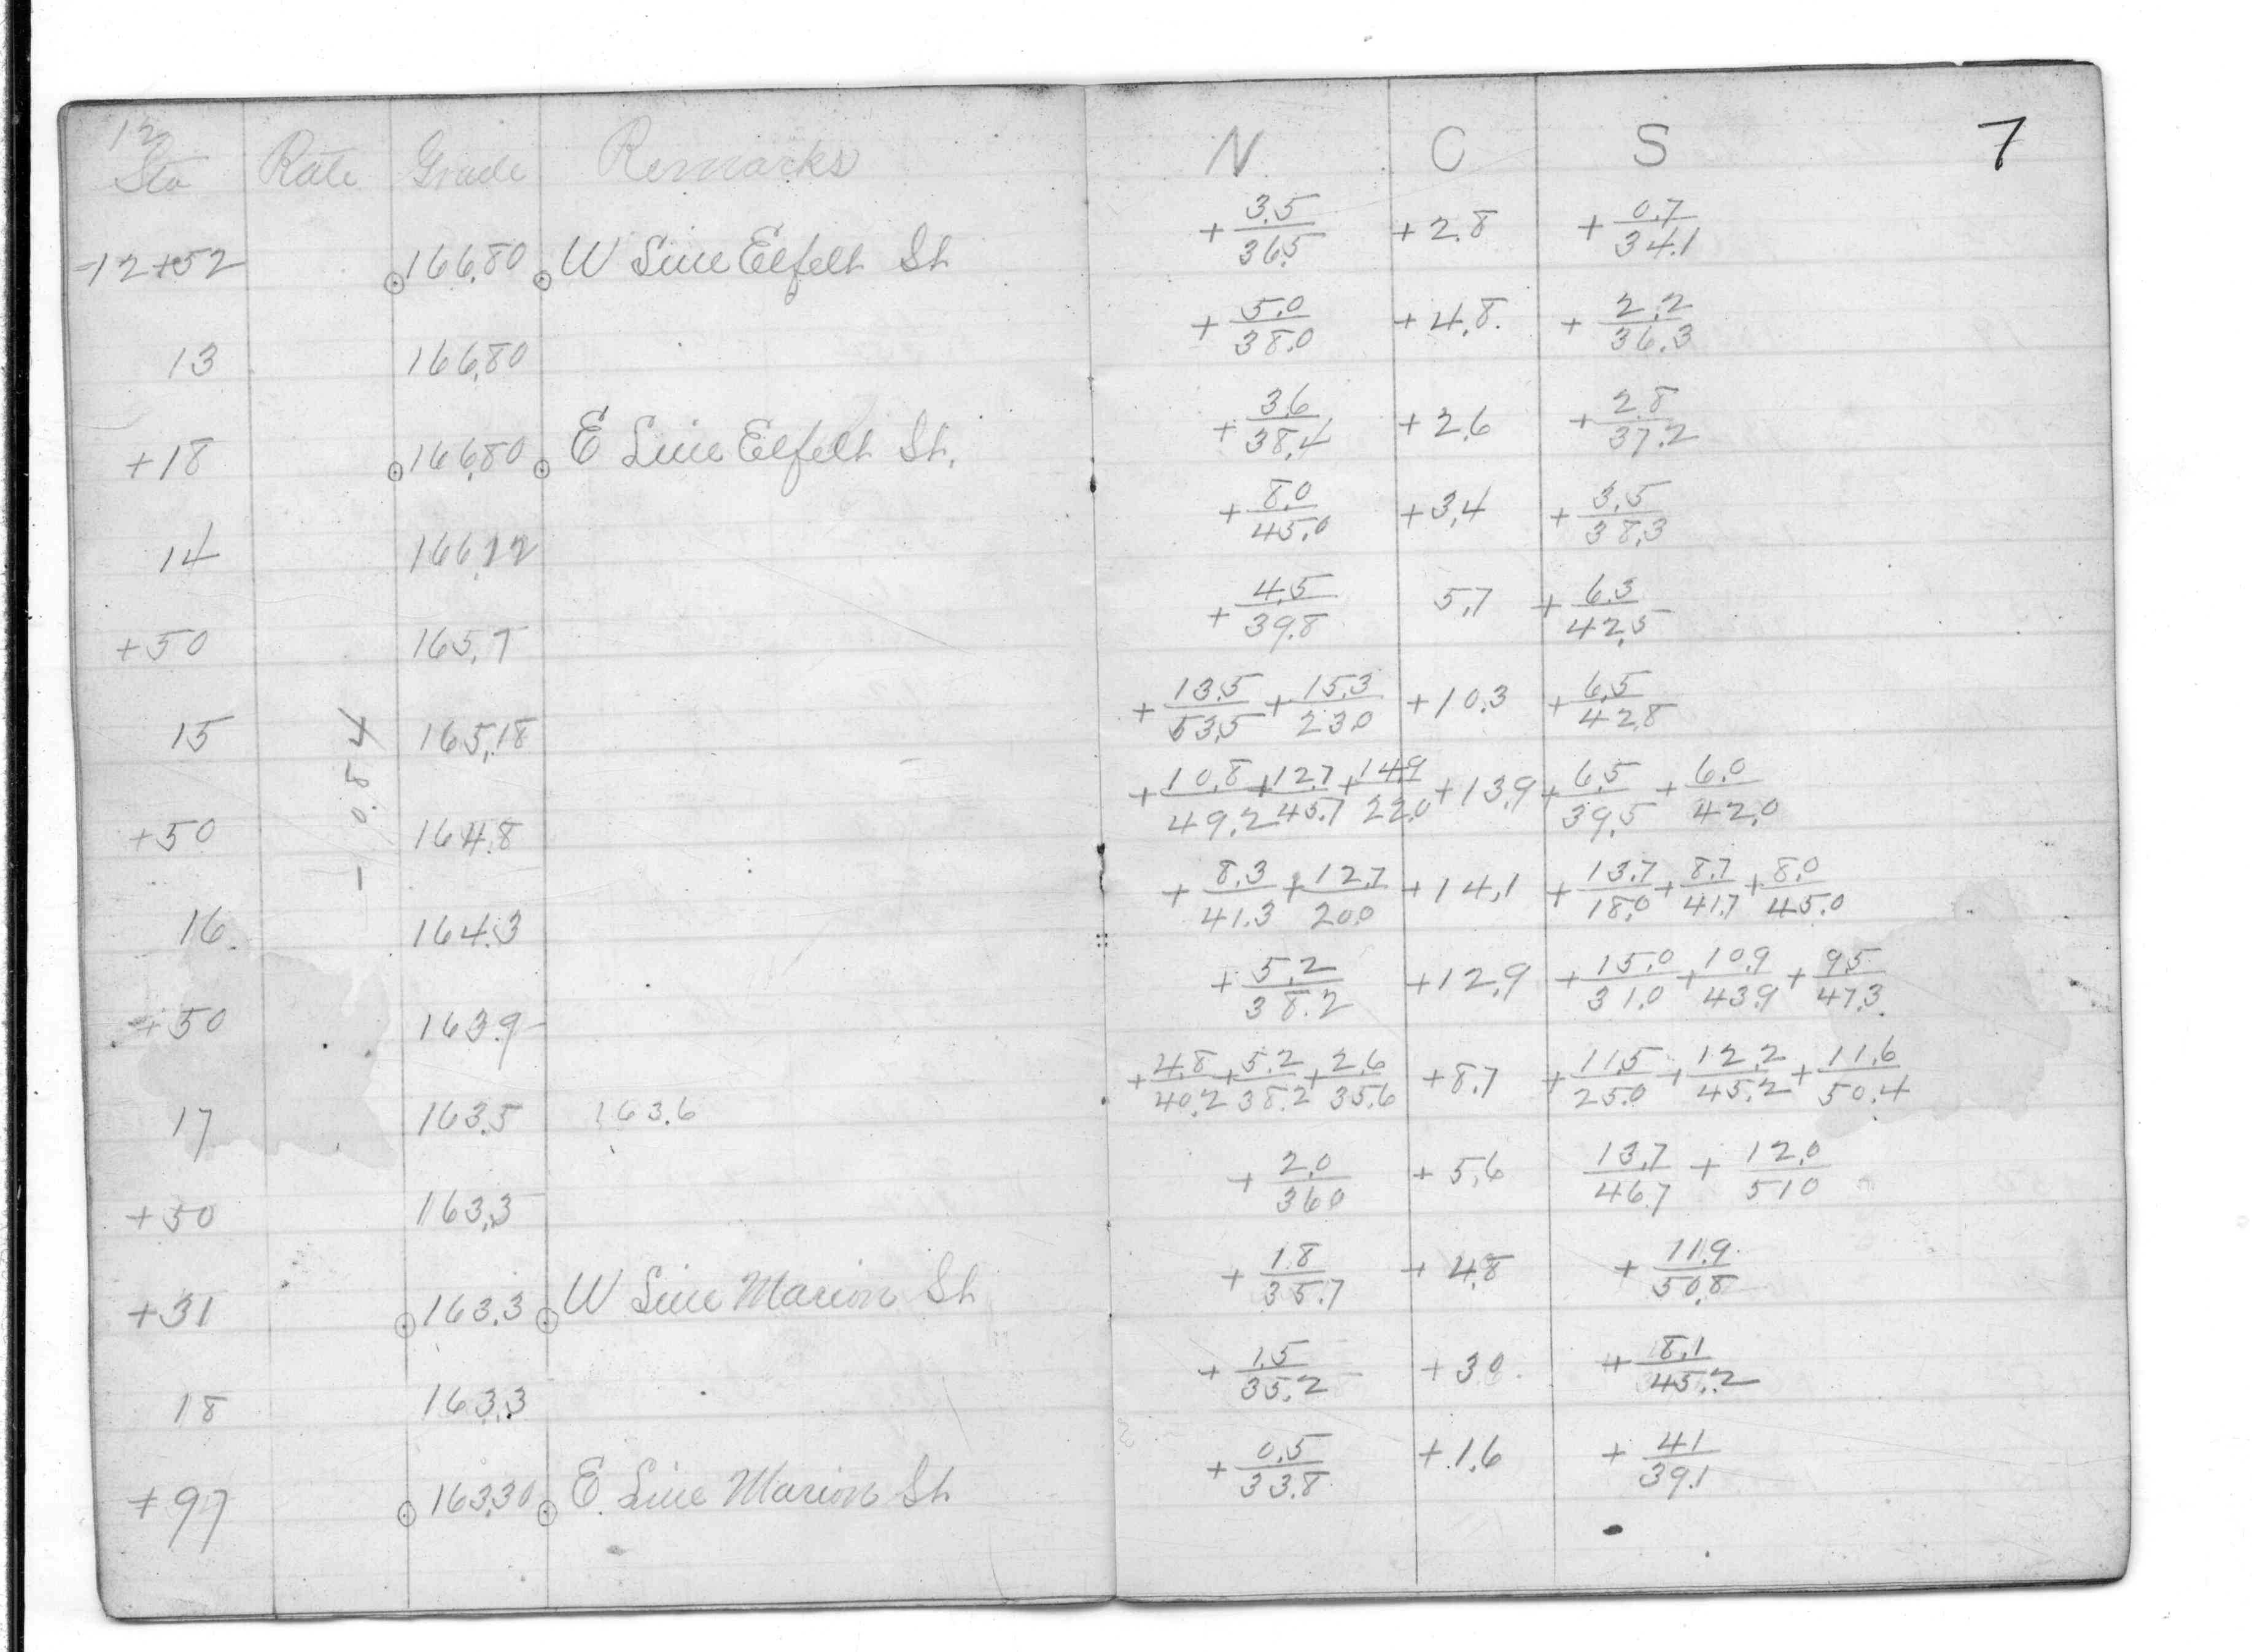 12
Sta Rate Grade Remarks N C S 7
12+52 166.80 W Line Elfelt St +3.5/36.5 +2.8 +0.7/34.1
13 166.80 +5.0/38.0 +4.8. +2.2/36.3
+18 166.80 E Line Elfelt St. +3.6/38.4 +2.6 +2.8/37.2
14 +8.0/45.0 +3.4 +3.5/38.3
+50 165.7 +4.5/39.8 5.7 +6.3/42.5
15 165.18 +13.5/53.5 +15.3/23.0 +10.3 +6.5/42.8
-0.84
+50 164.8 +10.8/49.2 +12.7/45.7 +14.9/22.0 +13.9 +6.5/39.5 +6.0/42.0
16 164.3 +8.3/41.3 +12.7/20.0 +14.1 +13.7/18.0 +8.7/41.7 +8.0/45.0
+50 163.9 +5.2/38.2 +12.9 +15.0/31.0 +10.9/43.9 +9.5/47.3
17 163.5 163.6 +4.8/40.2 +5.2/38.2 +2.6/35.6 +8.7 +11.5/25.0 +12.2/45.2 +11.6/50.4
+50 163.3 +2.0/36.0 +5.6 13.7/46.7 + 12.0/51.0
+31 163.3 W Line Marion St +1.8/35.7 +4.8 +11.9/50.8
18 163.3 +1.5/35.2 +3.0 +8.1/45.2
+97 163.30 E. Line Marion St. +0.5/33.8 +1.6 +4.1/39.1